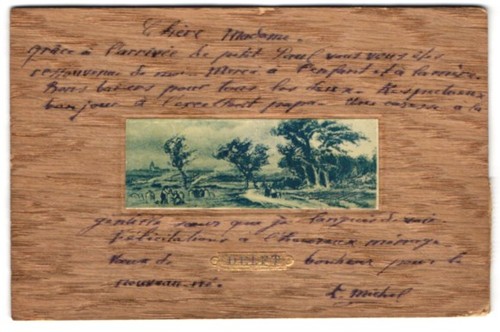 Chère Madame.
grâce à l'arrivée de petit Paul vous vous êtes
ressouvenu de moi. Merci à l'enfant et à la mère.
Bons baisers pour tous les deux. Respectueux
bonjour à l'excellent papa. Une caresse à la
pour que je
félicitations à l'heureux ménage
Vœux de bonheur pour le
nouveau-né.
Michel